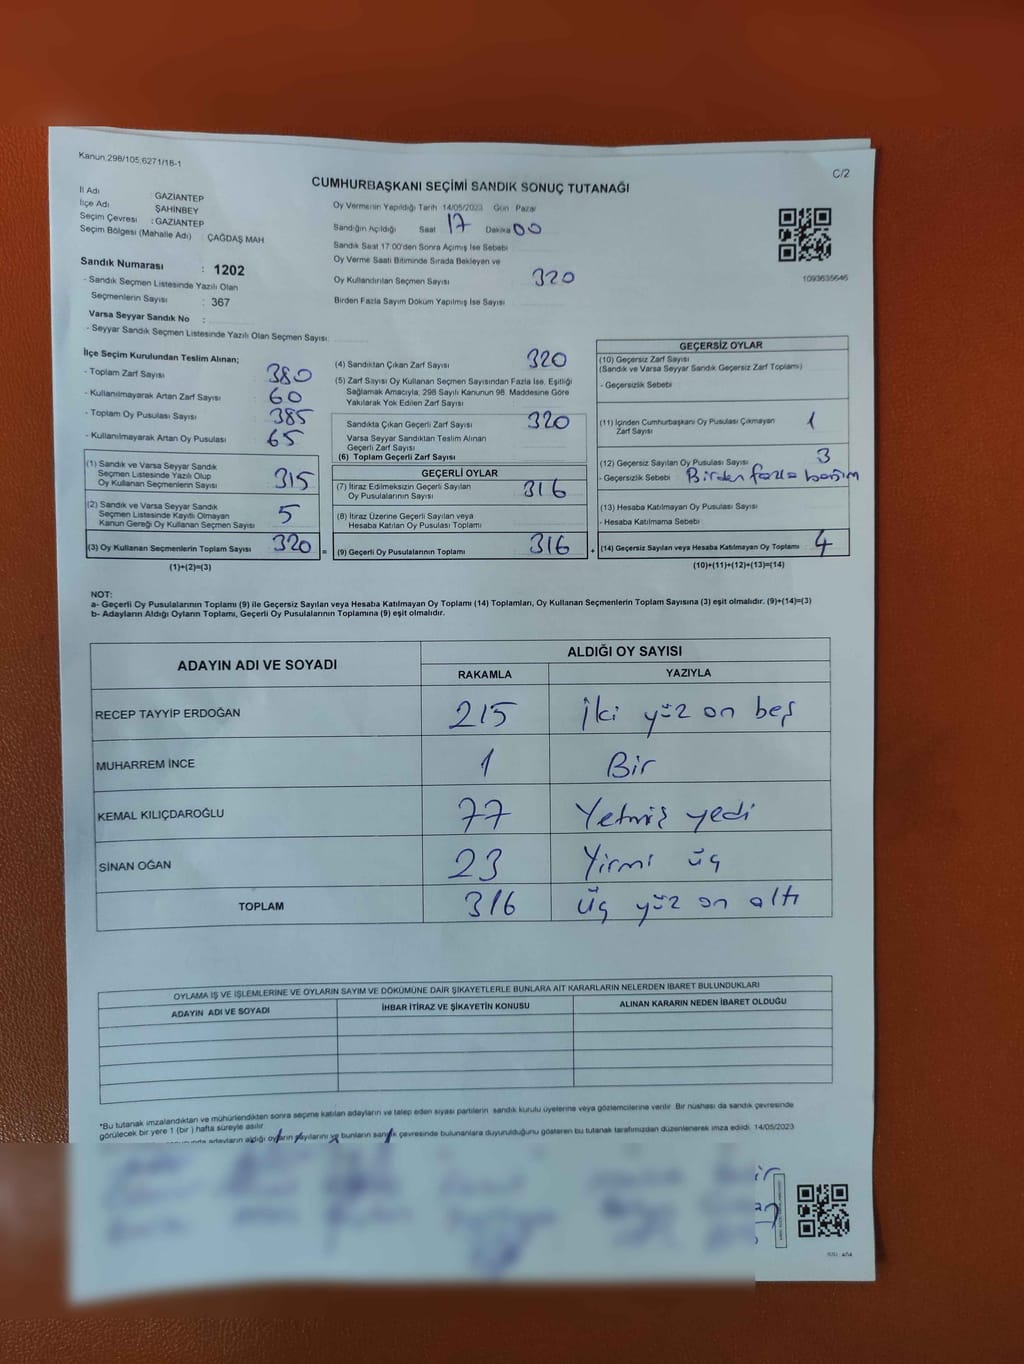 Kanun.298/105,6271/18-1
C/2
CUMHURBAŞKANI SEÇİMİ SANDIK SONUÇ TUTANAĞI
İl Adı GAZİANTEP
İlçe Adı ŞAHİNBEY
Seçim Çevresi : GAZİANTEP
Seçim Bölgesi (Mahalle Adı) : ÇAĞDAŞ MAH
Sandık Numarası : 1202
- Sandık Seçmen Listesinde Yazılı Olan
Seçmenlerin Sayısı : 367
Varsa Seyyar Sandık No :
- Seyyar Sandık Seçmen Listesinde Yazılı Olan Seçmen Sayısı:
Oy Vermenin Yapıldığı Tarih 14/05/2023 Gün Pazar
Sandığın Açıldığı Saat 17 Dakika 00
Sandık Saat 17:00'den Sonra Açımış İse Sebebi
Oy Verme Saati Bitiminde Sırada Bekleyen ve
Oy Kullandırılan Seçmen Sayısı 320
Birden Fazla Sayım Döküm Yapılmış İse Sayısı
1093635646
İlçe Seçim Kurulundan Teslim Alınan;
- Toplam Zarf Sayısı 380
- Kullanılmayarak Artan Zarf Sayısı 60
- Toplam Oy Pusulası Sayısı 385
- Kullanılmayarak Artan Oy Pusulası 65
(1) Sandık ve Varsa Seyyar Sandık
Seçmen Listesinde Yazılı Olup
Oy Kullanan Seçmenlerin Sayısı 315
(2) Sandık ve Varsa Seyyar Sandık
Seçmen Listesinde Kayıtlı Olmayan
Kanun Gereği Oy Kullanan Seçmen Sayısı 5
(3) Oy Kullanan Seçmenlerin Toplam Sayısı 320 =
(1)+(2)=(3)
(4) Sandıktan Çıkan Zarf Sayısı 320
(5) Zarf Sayısı Oy Kullanan Seçmen Sayısından Fazla İse, Eşitliği
Sağlamak Amacıyla, 298 Sayılı Kanunun 98. Maddesine Göre
Yakılarak Yok Edilen Zarf Sayısı
Sandıkta Çıkan Geçerli Zarf Sayısı 320
Varsa Seyyar Sandıktan Teslim Alınan
Geçerli Zarf Sayısı
(6) Toplam Geçerli Zarf Sayısı
GEÇERLİ OYLAR
(7) İtiraz Edilmeksizin Geçerli Sayılan
Oy Pusulalarının Sayısı 316
(8) İtiraz Üzerine Geçerli Sayılan veya
Hesaba Katılan Oy Pusulası Toplamı
(9) Geçerli Oy Pusulalarının Toplamı 316 +
GEÇERSİZ OYLAR
(10) Geçersiz Zarf Sayısı
(Sandık ve Varsa Seyyar Sandık Geçersiz Zarf Toplamı)
- Geçersizlik Sebebi
(11) İçinden Cumhurbaşkanı Oy Pusulası Çıkmayan
Zarf Sayısı 1
(12) Geçersiz Sayılan Oy Pusulası Sayısı 3
- Geçersizlik Sebebi Birden fazla basim
(13) Hesaba Katılmayan Oy Pusulası Sayısı
- Hesaba Katılmama Sebebi
(14) Geçersiz Sayılan veya Hesaba Katılmayan Oy Toplamı 4
(10)+(11)+(12)+(13)=(14)
NOT:
a- Geçerli Oy Pusulalarının Toplamı (9) ile Geçersiz Sayılan veya Hesaba Katılmayan Oy Toplamı (14) Toplamları, Oy Kullanan Seçmenlerin Toplam Sayısına (3) eşit olmalıdır. (9)+(14)=(3)
b- Adayların Aldığı Oyların Toplamı, Geçerli Oy Pusulalarının Toplamına (9) eşit olmalıdır.
ADAYIN ADI VE SOYADI ALDIĞI OY SAYISI
RAKAMLA YAZIYLA
RECEP TAYYİP ERDOĞAN 215 İki yüz on beş
MUHARREM İNCE 1 Bir
KEMAL KILIÇDAROĞLU 77 Yetmiş yedi
SİNAN OĞAN 23 Yirmi üç
TOPLAM 316 üç yüz on altı
OYLAMA İŞ VE İŞLEMLERİNE VE OYLARIN SAYIM VE DÖKÜMÜNE DAİR ŞİKAYETLERLE BUNLARA AİT KARARLARIN NELERDEN İBARET BULUNDUKLARI
ADAYIN ADI VE SOYADI İHBAR İTİRAZ VE ŞİKAYETİN KONUSU ALINAN KARARIN NEDEN İBARET OLDUĞU
*Bu tutanak imzalandıktan ve mühürlendikten sonra seçime katılan adayların ve talep eden siyasi partilerin sandık kurulu üyelerine veya gözlemcilerine verilir. Bir nüshası da sandık çevresinde
görülecek bir yere 1 (bir ) hafta süreyle asılır.
adayların aldığı oyların sayılarını ve bunların sandık çevresinde bulunanlara duyurulduğunu gösteren bu tutanak tarafımızdan düzenlenerek imza edildi. 14/05/2023